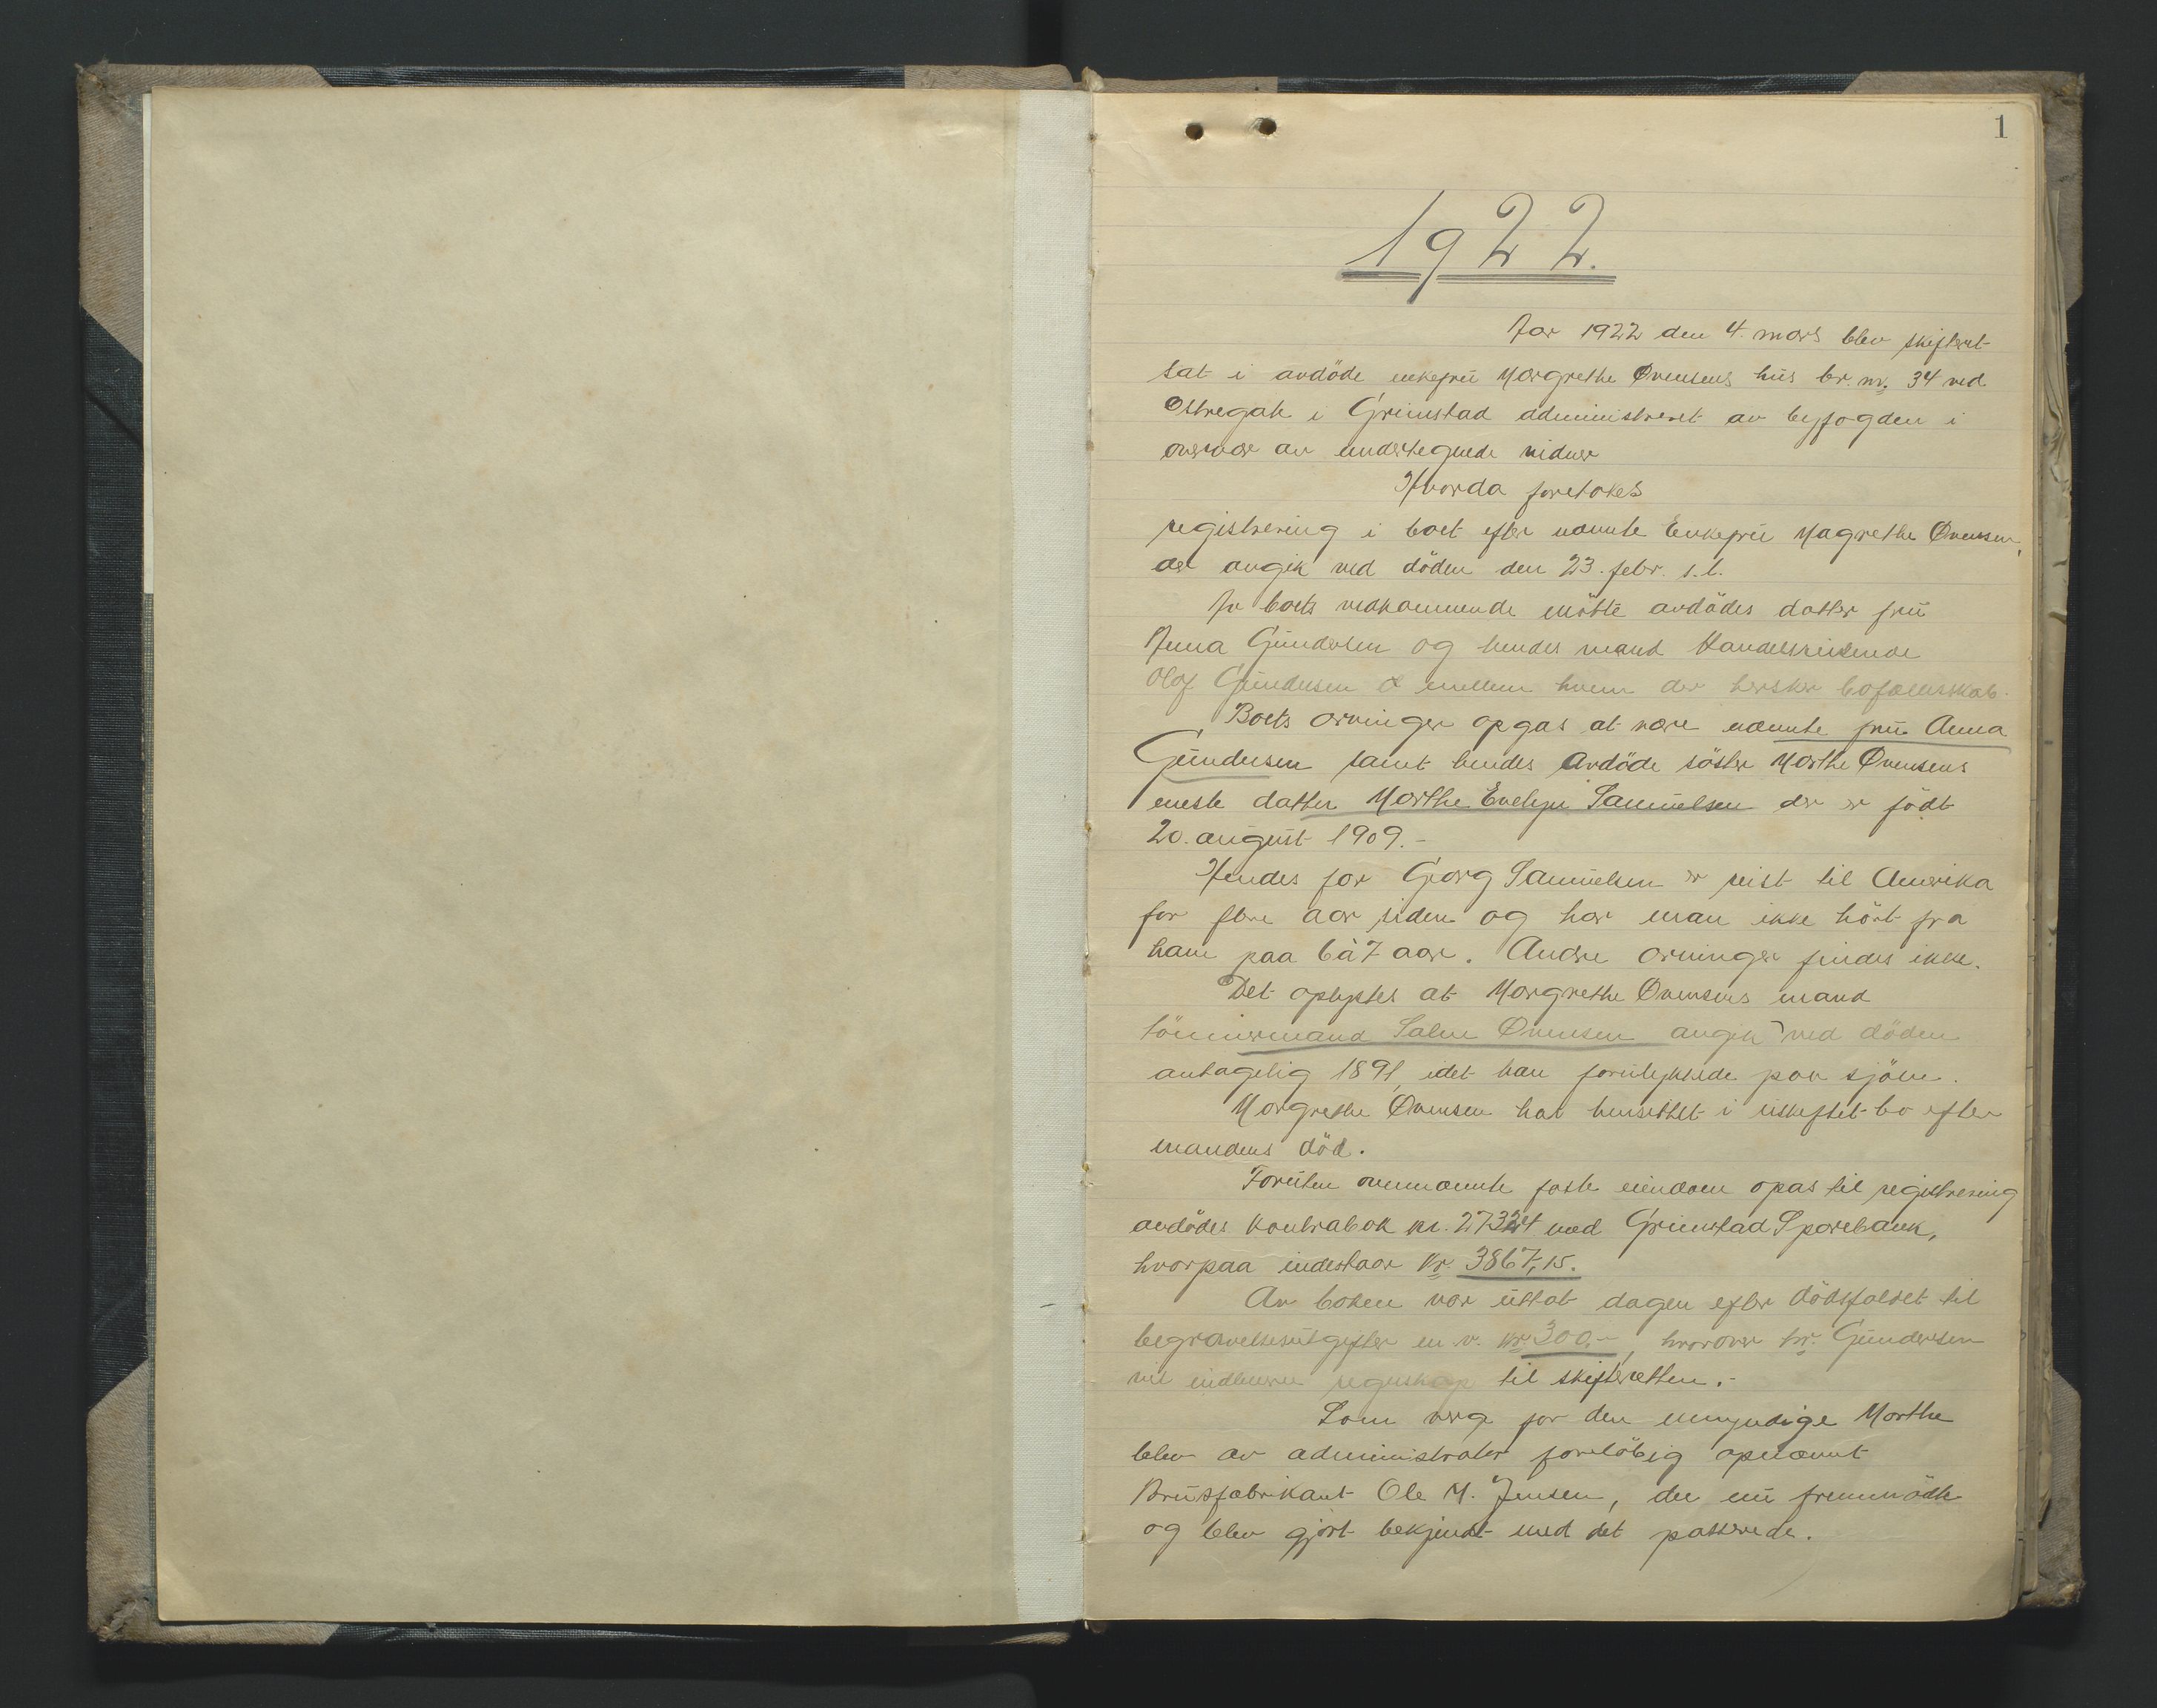 1
1922.
Aar 1922 den 4. mars blev skifteret
sat i avdöde enkefru Margrethe Ovensens hus br. nr. 34 ved
Østregate i Grimstad administreret av byfogden i
overvær av undertegnede vidner
Hvorda foretokes
registrering i boet efter nævnte Enkefru Magrethe Ovensen,
der avgik ved döden den 23. febr. s.l.
For boets vedkommende mötte avdödes datter fru
Anna Gundersen og hendes mand Handelsreisende
Olaf Gundersen mellem hvem der hersker bofællesskab.
Boets arvinger opgas at være nævnte fru Anna
Gundersen samt hendes avdöde söster Marthe Ovensens
eneste datter Marthe Evelyn Samuelsen der er födt
20. august 1909.-
Hendes far Georg Samuelsen er reist til Amerika
for flere aar siden og har man ikke hört fra
ham paa 6 à 7 aar. Andre arvinger findes ikke.
Det oplystes at Margrethe Ovensens mand
tömmermand Salve Ovensen avgik ved döden
antagelig 1891, idet han forulykkede paa sjöen.
Margrethe Ovensen har hensittet i uskiftet bo efter
mandens död.
Foruten ovennævnte faste eiendom opgas til registrering
avdödes kontrabok nr. 27324 med Grimstad Sparebank,
hvorpaa indestaar kr. 3867,15.
Av boken var uttat dagen efter dödsfaldet til
begravelsesutgifter m. v. kr. 300.-, hvorover hr. Gundersen
vil indlevere regnskap til skifteretten.-
Som verge for den umyndige Marthe
blev av administrator foreløbig opnævnt
Brusfabrikant Ole M. Jensen, der nu fremmödte
og blev gjort bekjendt med det passerede.